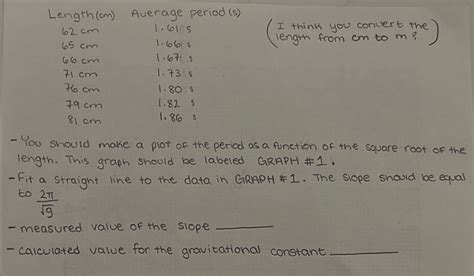 Length (cm) Average period (s)
62 cm 1.61 s
65 cm 1.66 s
66 cm 1.67 s
71 cm 1.73 s
76 cm 1.80 s
79 cm 1.82 s
81 cm 1.86 s
(I think you convert the
length from cm to m?)
- You should make a plot of the period as a function of the square root of the
length. This graph should be labeled GRAPH #1.
- Fit a straight line to the data in GRAPH #1. The slope should be equal
to 2π/√g
- measured value of the slope ______
- calculated value for the gravitational constant ______